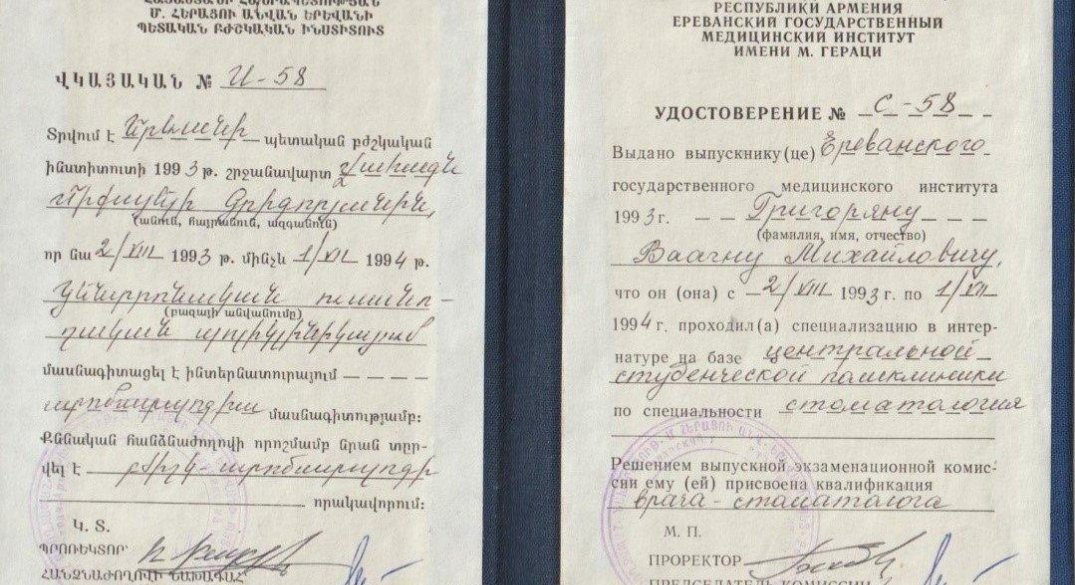 ՊԵՏԱԿԱՆ ԲԺՇԿԱԿԱՆ ԻՆՍՏԻՏՈՒՏ
Մ. ՀԵՐԱՑՈՒ ԱՆՎԱՆ ԵՐԵՎԱՆԻ
ՎԿԱՅԱԿԱՆ № Ս-58
Տրվում է Երևանի պետական բժշկական
ինստիտուտի 1993 թ. շրջանավարտ Վահագն
Միքայելի Գրիգորյանին,
(անուն, հայրանուն, ազգանուն)
որ նա 2/VIII 1993 թ. մինչև 1/VII 1994 թ.
Կենտրոնական ուսանո-
(բազայի անվանումը)
ղական պոլիկլինիկայում
մասնագիտացել է ինտերնատուրայում
ստոմատոլոգիա մասնագիտությամբ:
Քննական հանձնաժողովի որոշմամբ նրան տրը-
վել է բժիշկ-ստոմատոլոգի
որակավորում:
Կ. Տ.
ՊՐՈՌԵԿՏՈՐ
ՀԱՆՁՆԱԺՈՂՈՎԻ ՆԱԽԱԳԱՀ
РЕСПУБЛИКИ АРМЕНИЯ
ЕРЕВАНСКИЙ ГОСУДАРСТВЕННЫЙ
МЕДИЦИНСКИЙ ИНСТИТУТ
ИМЕНИ М. ГЕРАЦИ
УДОСТОВЕРЕНИЕ № С-58
Выдано выпускнику(це) Ереванского
государственного медицинского института
1993 г. Григоряну
(фамилия, имя, отчество)
Ваагну Михайловичу,
что он (она) с 2/VIII 1993 г. по 1/VII
1994 г. проходил(а) специализацию в интер-
натуре на базе центральной
студенческой поликлиники
по специальности стоматология
Решением выпускной экзаменационной комис-
сии ему (ей) присвоена квалификация
врача-стоматолога
М. П.
ПРОРЕКТОР
ПРЕДСЕДАТЕЛЬ КОМИССИИ